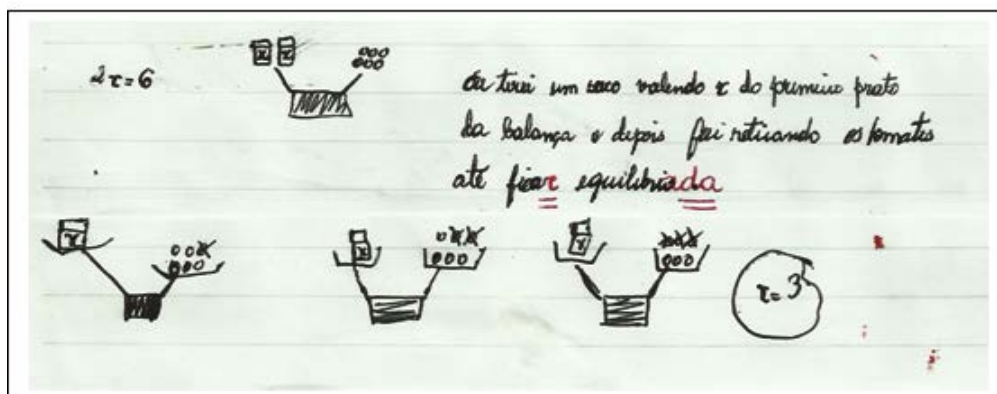 2x=6
x x
eu tirei um saco valendo x do primeiro prato
da balança e depois fui retirando os tomates
até ficar equilibrada
x
x
x
x=3